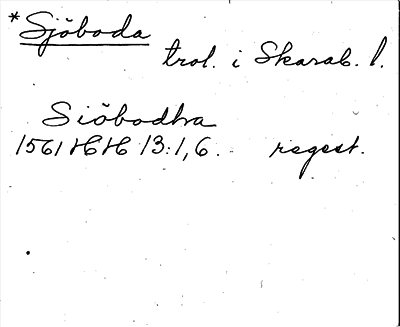 *Sjöboda
trol. i Skarab. l.
Siöbodha
1561 HH 13:1,6. regest.